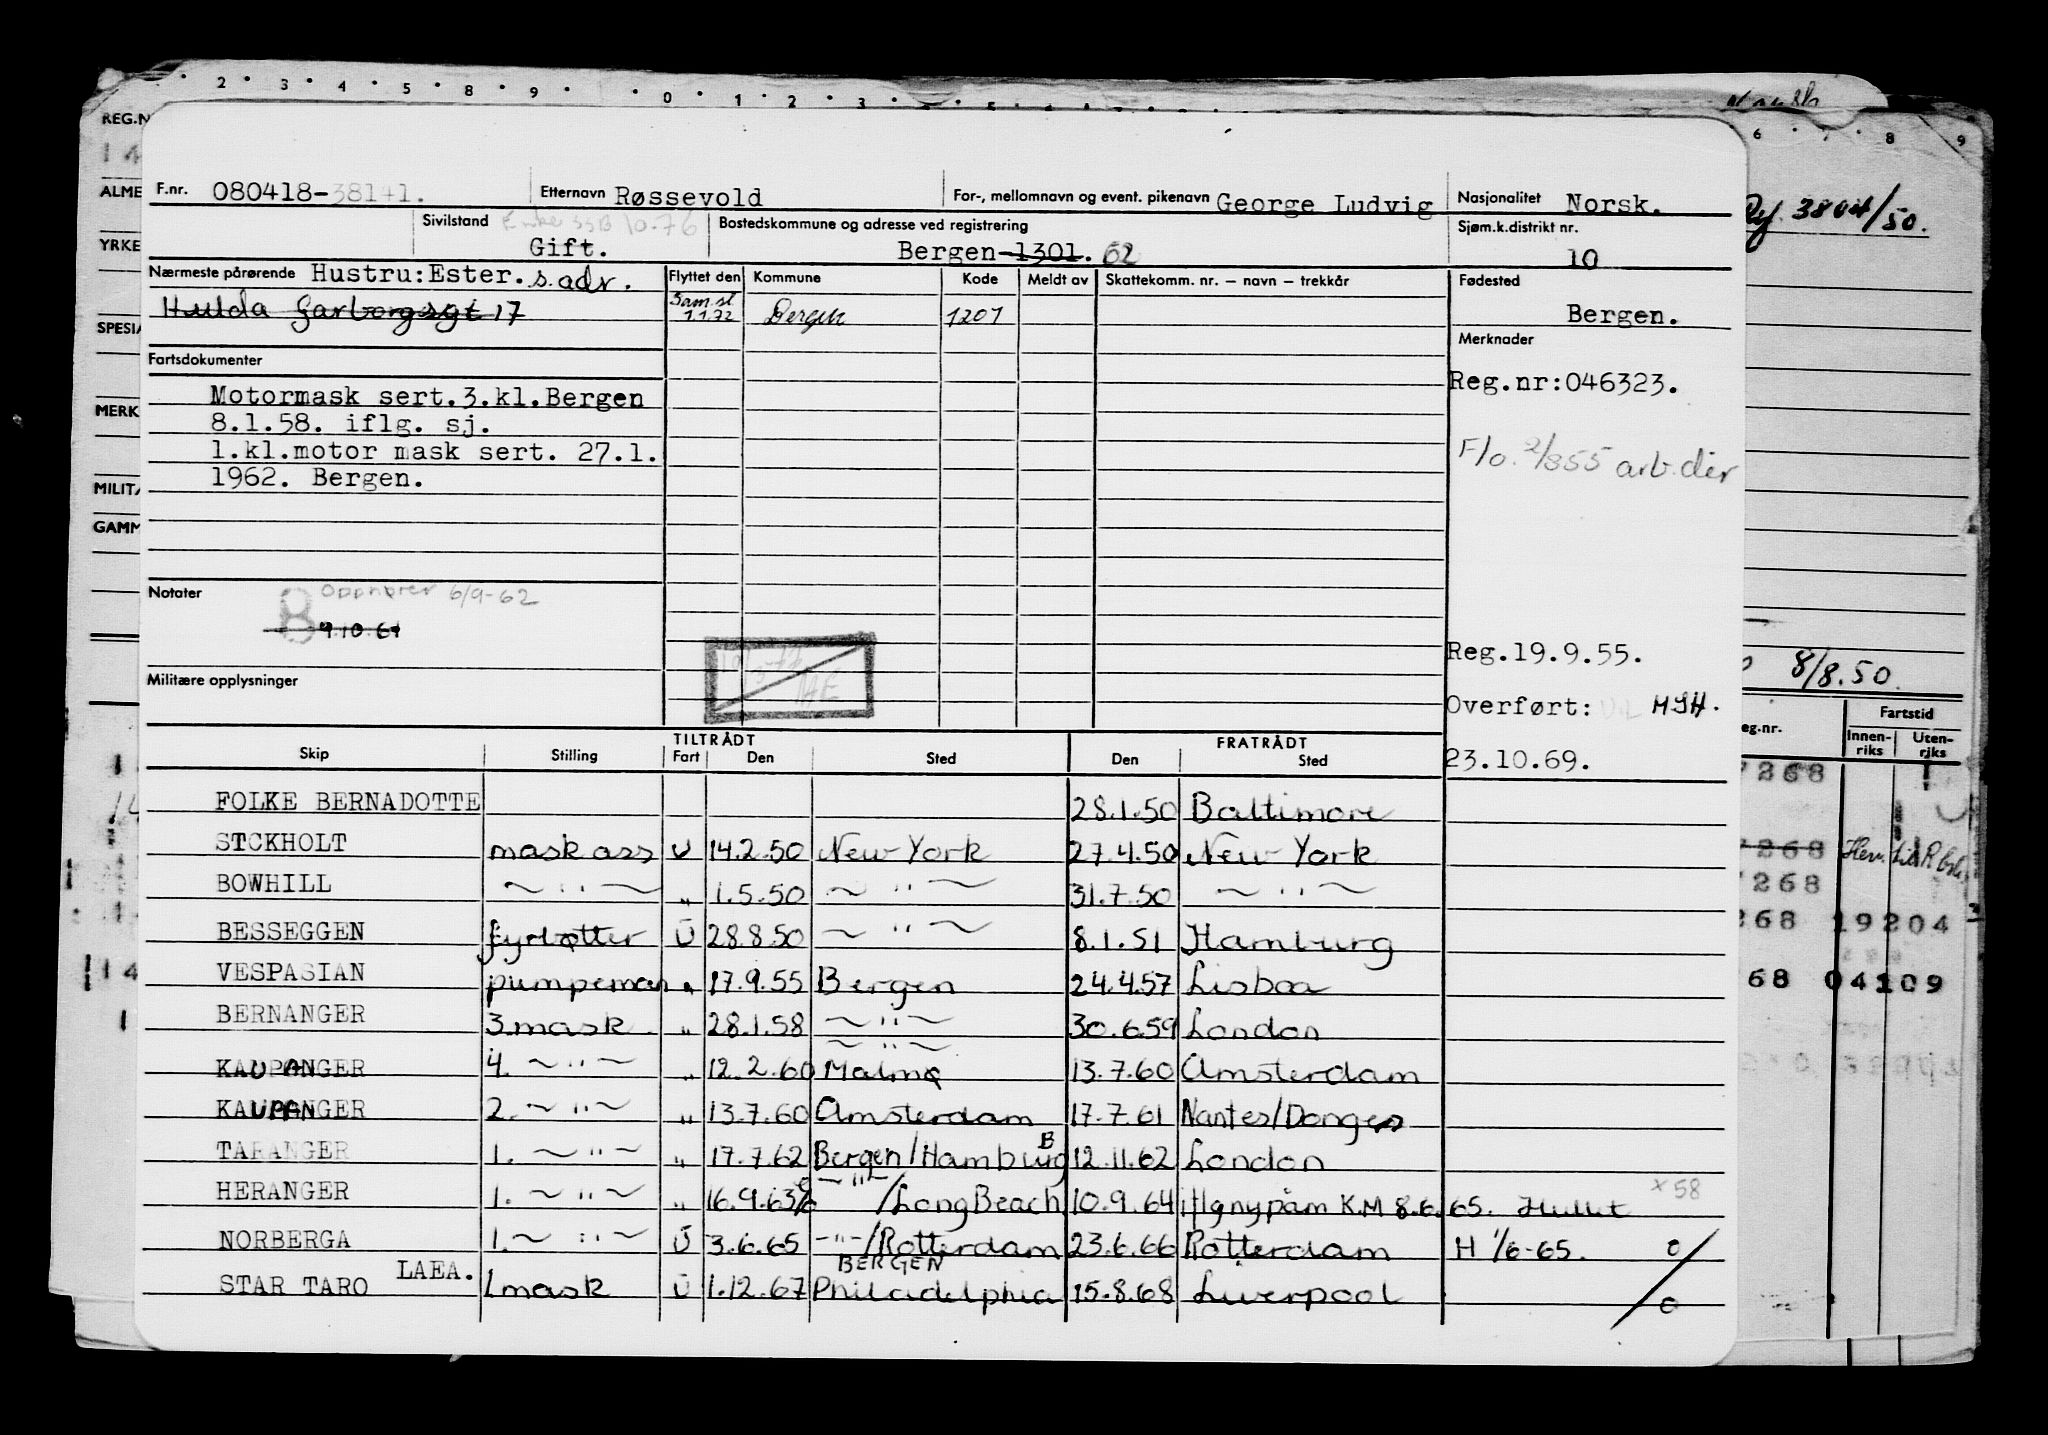 2 · 3 · 4 · 5 · 8 · 9 · 0 · 1 · 2 · 3
REG.N
ALME
YRKE
SPESIA
MERK
MILITÆ
GAMM
F.nr. 080418-38141. Etternavn Røssevold For-, mellomnavn og event. pikenavn George Ludvig Nasjonalitet Norsk.
Sivilstand Enke SSB 10-76 Bostedskommune og adresse ved registrering Sjøm.k.distrikt nr.
Gift. Bergen-1301. 62 10
Nærmeste pårørende Hustru:Ester. s.adr. Flyttet den Kommune Kode Meldt av Skattekomm. nr. – navn – trekkår Fødested
Hulda Garborgsgt 17 Sam.sl 1.1.72 Bergen 1201 Bergen.
Fartsdokumenter Merknader
Motormask sert.3.kl.Bergen Reg.nr:046323.
8.1.58. iflg. sj.
1.kl.motor mask sert. 27.1. F/o. 2/855 arb.dir
1962. Bergen.
Notater Opphører 6/9-62
9.10.61
Reg.19.9.55.
Militære opplysninger
Overført: HJH.
23.10.69.
TILTRÅDT FRATRÅDT
Skip Stilling Fart Den Sted Den Sted
FOLKE BERNADOTTE 28.1.50 Baltimore
STCKHOLT mask ass U 14.2.50 New York 27.4.50 New York
BOWHILL ~ " ~ " 1.5.50 ~ " ~ 31.7.50 ~ " ~
BESSEGGEN fyrbøtter U 28.8.50 ~ " ~ 8.1.51 Hamburg
VESPASIAN pumpeman " 17.9.55 Bergen 24.4.57 Lisboa
BERNANGER 3.mask " 28.1.58 ~ " ~ 30.6.59 London
~ " ~
KAUPANGER 4. ~ " ~ " 12.2.60 Malmø 13.7.60 Amsterdam
KAUPANGER 2. ~ " ~ " 13.7.60 Amsterdam 17.7.61 Nantes/Donges
TARANGER 1. ~ " ~ " 17.7.62 Bergen/Hamburg B 12.11.62 London
HERANGER 1. ~ " ~ " 16.9.63 ~ " ~ /Long Beach 10.9.64 iflg nypåm K.M 8.6.65. Hullet x58
NORBERGA 1. ~ " ~ U 3.6.65 -"-/Rotterdam 23.6.66 Rotterdam H 1/6-65. 0
BERGEN
STAR TARO LAEA. 1mask U 1.12.67 Philadelphia 15.8.68 Liverpool 0
6 · 7 · 8 9
Ref. 3804/50.
8/8.50.
eg.nr. Fartstid
Innen-riks Uten-riks
7268
7268
7268
268 19204
68 04109